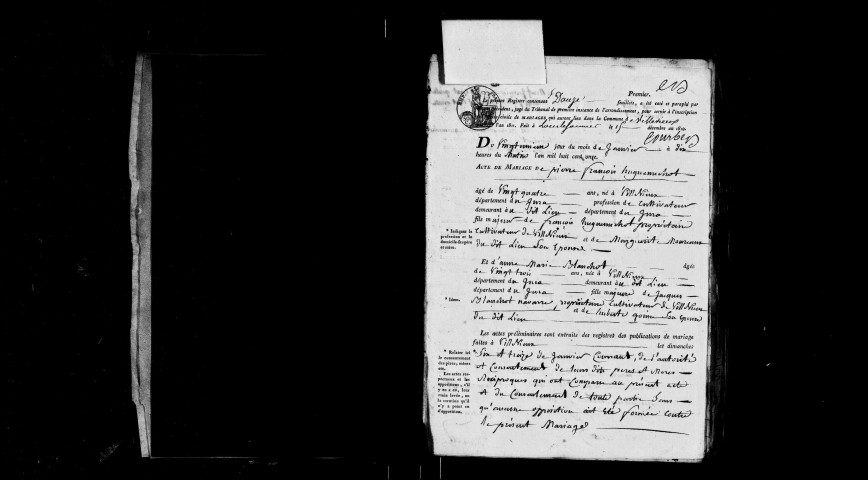 Premier.
Le présent Registre contenant Douze feuillets, a été coté et paraphé par
Président, juge du Tribunal de première instance de l'arrondissement, pour servir à l'inscription
de MARIAGES, qui auront lieu dans la Commune de Villevieux
l'an 1811. Fait à Lons le Saunier le 15 décembre an 1810.
DU Vingt unieme jour du mois de Janvier à dix
heures du Matin l'an mil huit cent onze.
ACTE DE MARIAGE de pierre françois huguenichot
âgé de Vingt quatre ans, né à Villevieux
département du Jura profession de Cultivateur
demeurant au dit Lieu département du Jura
fils majeur de françois huguenichot propriétaire
* Indiquer la profession et le domicile des père et mère.
Cultivateur de Villevieux et de Marguerite
du dit Lieu Son Epouse
Et d'anne Marie Blanchot âgée
de Vingt trois ans, née à Villevieux
département du Jura demeurant au dit Lieu
département du Jura fille majeure de Jacques
* Idem.
Blanchot navarre, propriétaire Cultivateur de Villevieux
et de Son Epouse
du dit Lieu
Les actes préliminaires sont extraits des registres des publications de mariage
faites à Villevieux les dimanches
* Relater ici le consentement des pères, mères, etc.
Les actes respectueux et les oppositions, s'il y en a eu, leur main levée, ou la mention qu'il n'y a point eu d'opposition.
Six et treize de Janvier Courant, de l'autorité
et Consentement de leurs dits peres et Meres
Réciproques qui ont Comparu au présent acte
et du Consentement de toute partie Sans
qu'aucune opposition ait été formée contre
le présent Mariage